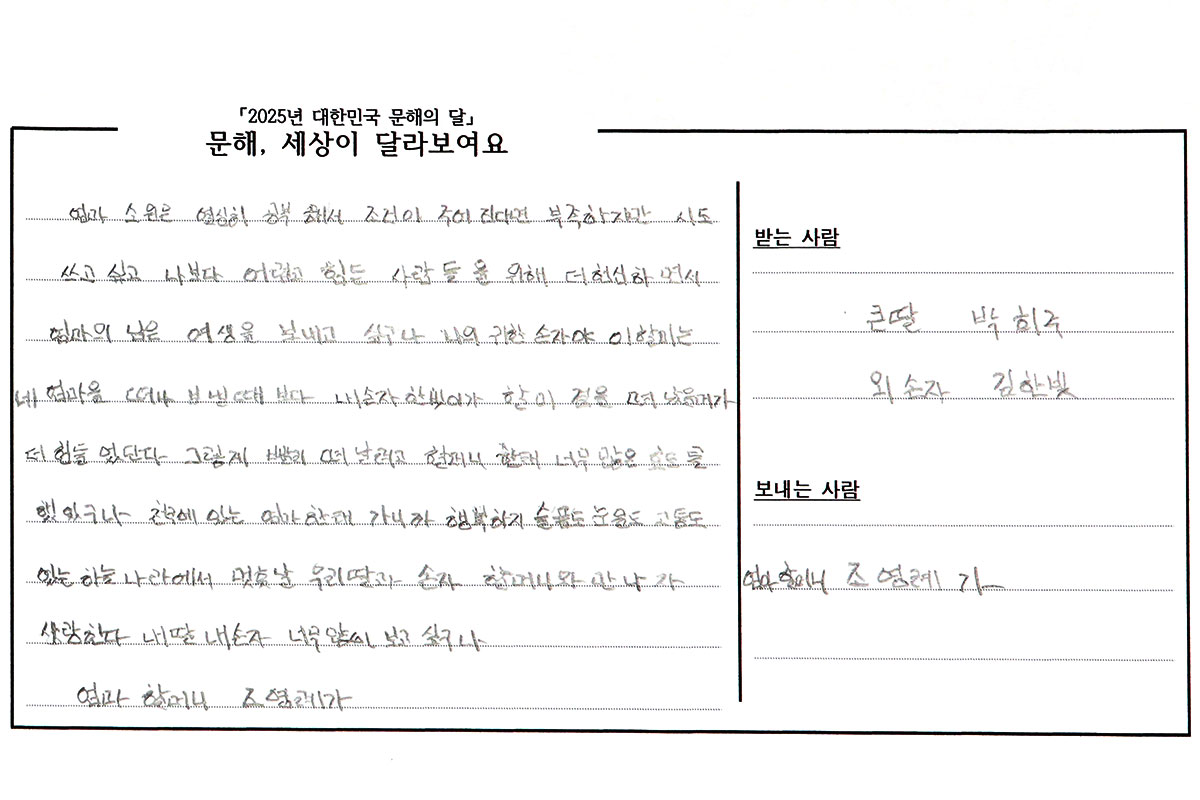 「2025년 대한민국 문해의 달」
문해, 세상이 달라보여요
엄마 소원은 열심히 공부 해서 조건이 주어 진다면 부족하지만 시도
쓰고 싶고 나보다 어렵고 힘든 사람들을 위해 더헌신하면서
엄마의 남은 여생을 보내고 싶구나 나의 귀한 손자야 이할미는
네 엄마을 떠나 보낸때 보다 내손자 한빛이가 할미 곁을
더 힘들 었단다 그렇게 빨리 떠날려고 할머니 한태 너무 많은 효도를
했있구나 천국에 있는 엄마한태 가니까 행복하지 슬픔도 눈물도 고통도
없는 하늘나라에서 먼훗날 우리딸과 손자 할머니와 만나자
사랑한다 내딸 내손자 너무 많이 보고 싶구나
엄마 할머니 조영례가
받는 사람
큰딸 박희주
외손자 김한빛
보내는 사람
엄마 할머니 조영례가